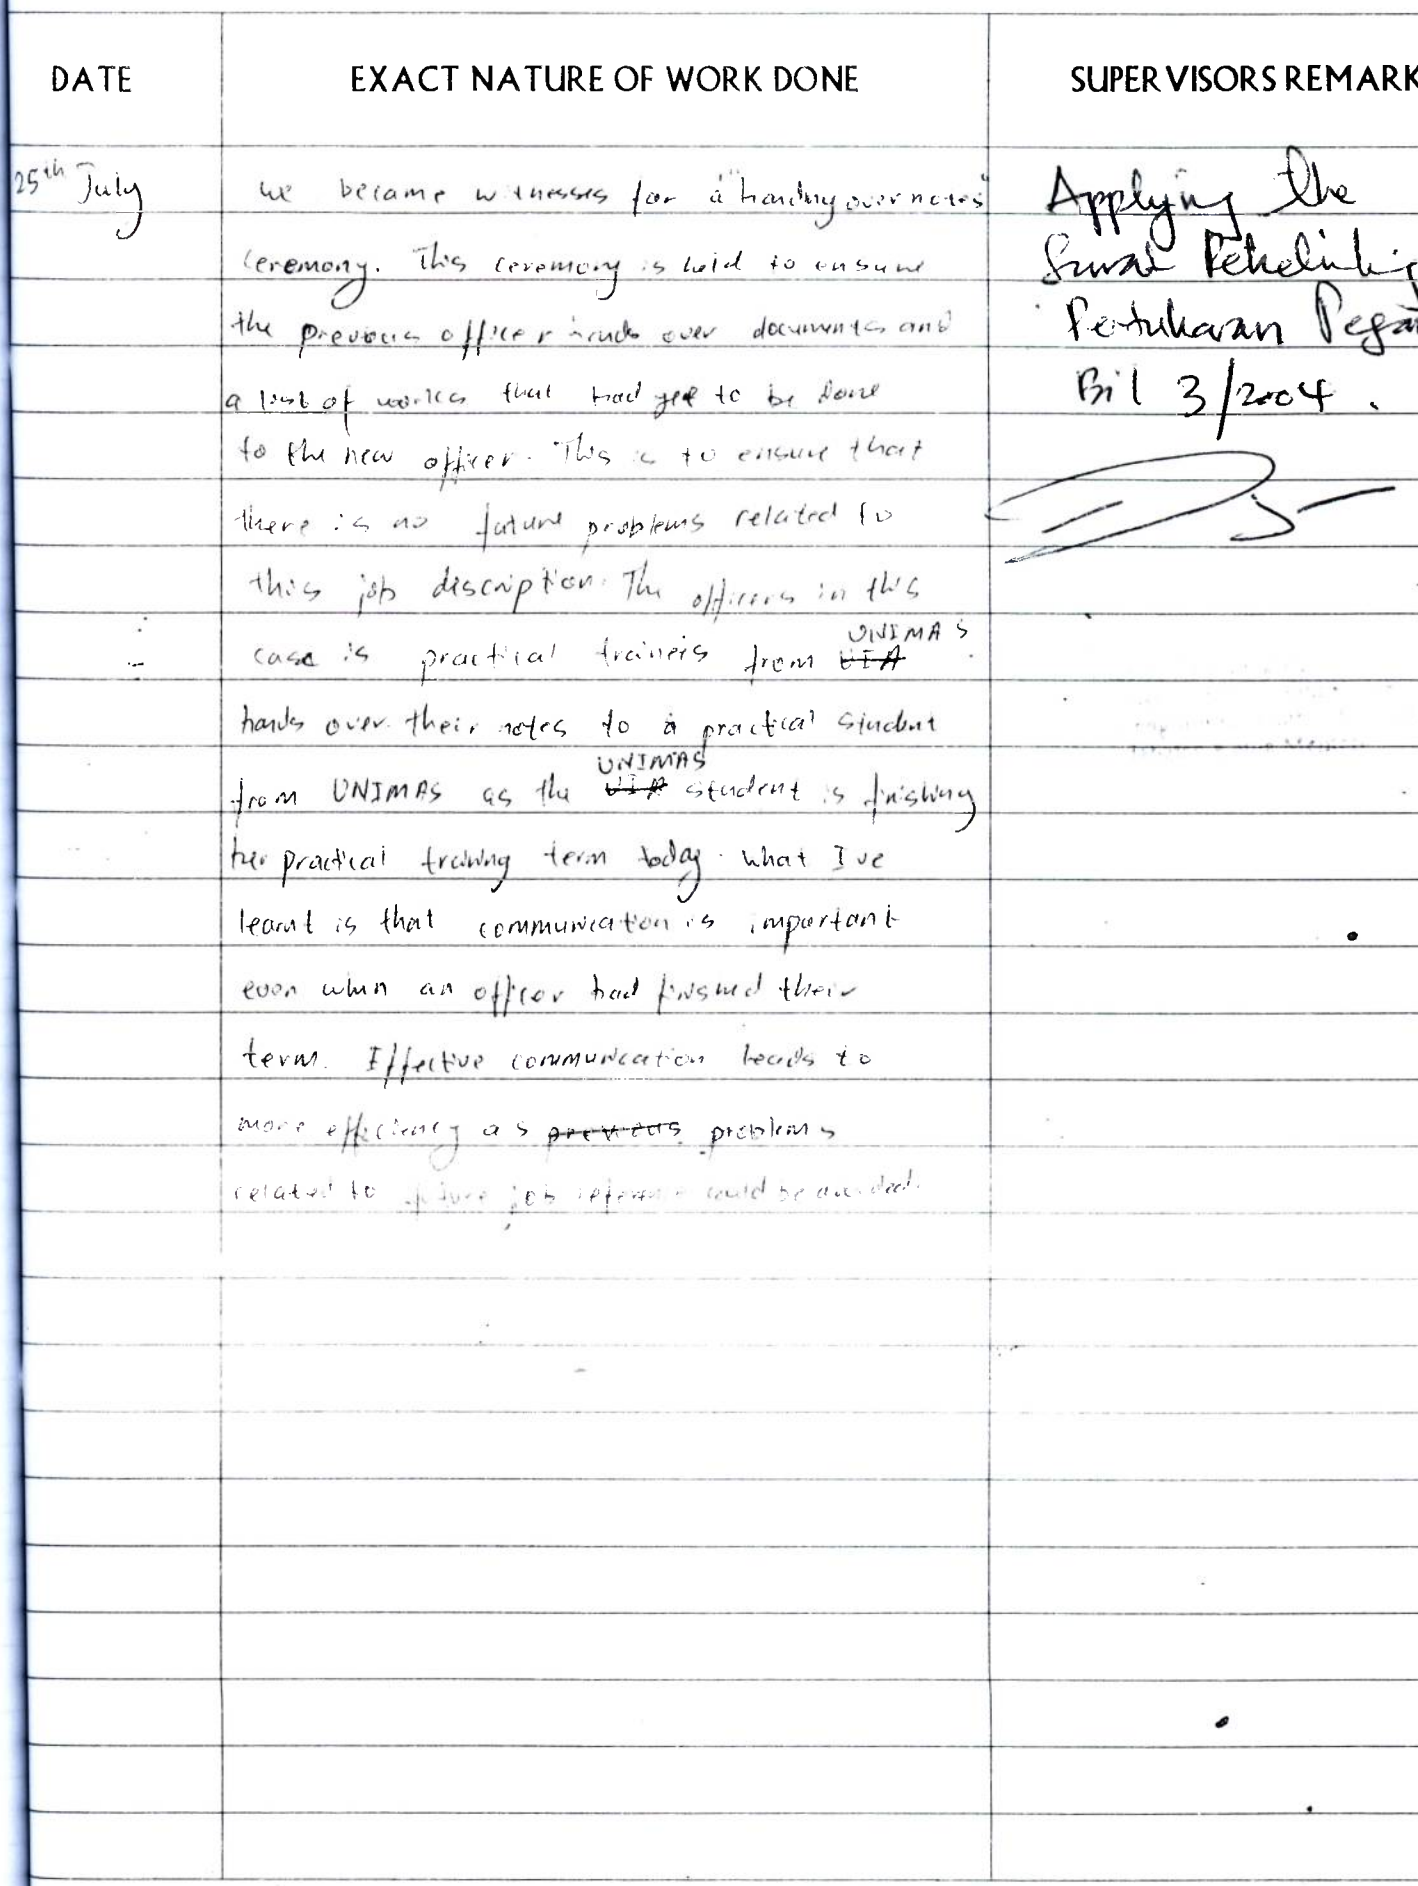 DATE
EXACT NATURE OF WORK DONE
SUPERVISORS REMARK
25th July
we became witnesses for a "handing over notes"
ceremony. This ceremony is held to ensure
the previous officer hands over documents and
a list of works that had yet to be done
to the new officer. This is to ensure that
there is no future problems related to
this job description. The officers in this
UNIMAS
case is practical trainers from UIA
hands over their notes to a practical student
UNIMAS
from UNIMAS as the UIA student is finishing
her practical training term today. What I've
learnt is that communication is important
even when an officer had finished their
term. Effective communication leads to
more efficiency as previous problems
related to future job reference could be avoided.
Applying the
Surat
Pertukaran
Bil 3/2004.